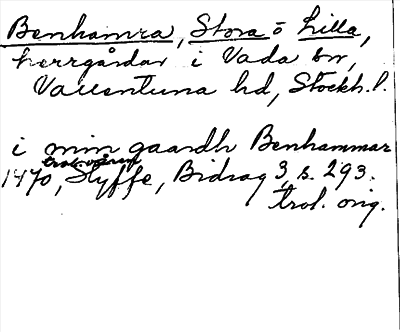 Benhamra, Stora o Lilla,
herrgårdar i Vada sn,
Vallentuna hd, Stockh. l.
i min gaardh Benhammar
trol. våren
1470, Styffe, Bidrag 3, s. 293.
trol. orig.